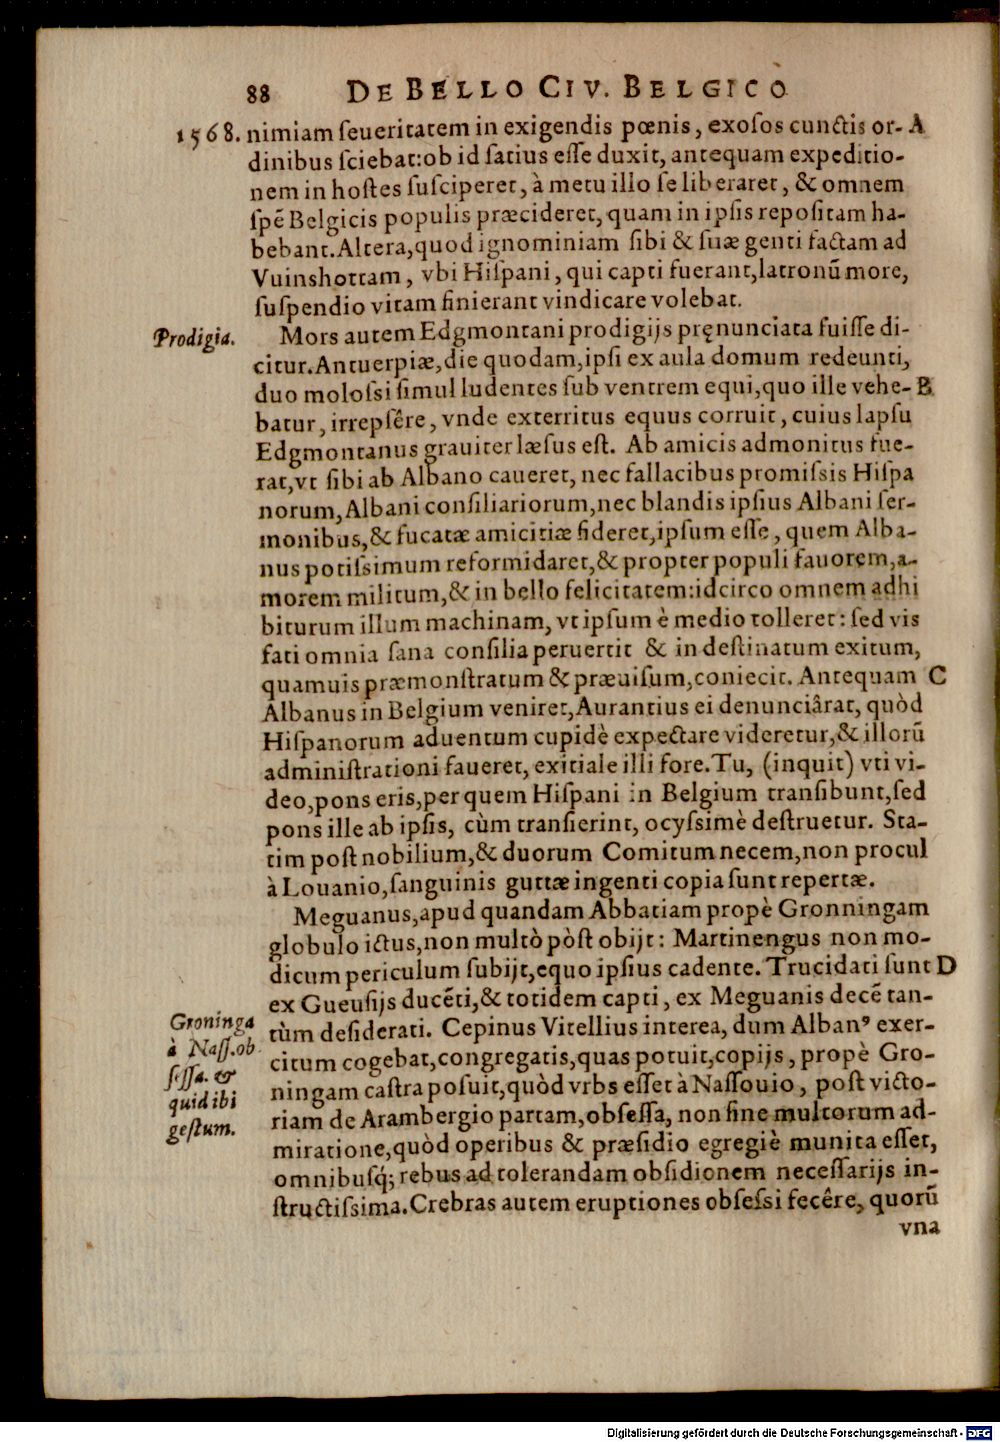 88 DE BELLO CIV. BELGICO
1568. nimiam ſeueritatem in exigendis pœnis, exoſos cunctis or- A
dinibus ſciebat: ob id ſatius eſſe duxit, antequam expeditio-
nem in hoſtes ſuſciperet, à metu illo ſe liberaret, & omnem
ſpē Belgicis populis præcideret, quam in ipſis repoſitam ha-
bebant. Altera, quod ignominiam ſibi & ſuæ genti factam ad
Vuinshottam, vbi Hiſpani, qui capti fuerant, latronū more,
ſuſpendio vitam finierant vindicare volebat.
Prodigia. Mors autem Edgmontani prodigijs pręnunciata fuiſſe di-
citur. Antuerpiæ, die quodam, ipſi ex aula domum redeunti,
duo moloſsi ſimul ludentes ſub ventrem equi, quo ille vehe- B
batur, irrepſêre, vnde exterritus equus corruit, cuius lapſu
Edgmontanus grauiter læſus eſt. Ab amicis admonitus fue-
rat, vt ſibi ab Albano caueret, nec fallacibus promiſsis Hiſpa
norum, Albani conſiliariorum, nec blandis ipſius Albani ſer-
monibus, & fucatæ amicitiæ fideret, ipſum eſſe, quem Alba-
nus potiſsimum reformidaret, & propter populi fauorem, a-
morem militum, & in bello felicitatem: idcirco omnem adhi
biturum illum machinam, vt ipſum è medio tolleret: ſed vis
fati omnia ſana conſilia peruertit & in deſtinatum exitum,
quamuis præmonſtratum & præuiſum, coniecit. Antequam C
Albanus in Belgium veniret, Aurantius ei denunciârat, quòd
Hiſpanorum aduentum cupidè expectare videretur, & illorū
adminiſtrationi faueret, exitiale illi fore. Tu, (inquit) vti vi-
deo, pons eris, per quem Hiſpani in Belgium tranſibunt, ſed
pons ille ab ipſis, cùm tranſierint, ocyſsimè deſtruetur. Sta-
tim poſt nobilium, & duorum Comitum necem, non procul
à Louanio, ſanguinis guttæ ingenti copia ſunt repertæ.
Meguanus, apud quandam Abbatiam propè Gronningam
globulo ictus, non multò pòſt obijt: Martinengus non mo-
dicum periculum ſubijt, equo ipſius cadente. Trucidati ſunt D
ex Gueuſijs ducēti, & totidem capti, ex Meguanis decē tan-
Groninga
à Naſſ. ob
ſeſſa. &
quid ibi
geſtum.
tùm deſiderati. Cepinus Vitellius interea, dum Albanꝰ exer-
citum cogebat, congregatis, quas potuit, copijs, propè Gro-
ningam caſtra poſuit, quòd vrbs eſſet à Naſſouio, poſt victo-
riam de Arambergio partam, obſeſſa, non ſine multorum ad-
miratione, quòd operibus & præſidio egregiè munita eſſet,
omnibuſq́; rebus ad tolerandam obſidionem neceſſarijs in-
ſtructiſsima. Crebras autem eruptiones obſeſsi fecêre, quorū
vna
Digitalisierung gefördert durch die Deutsche Forschungsgemeinschaft - DFG